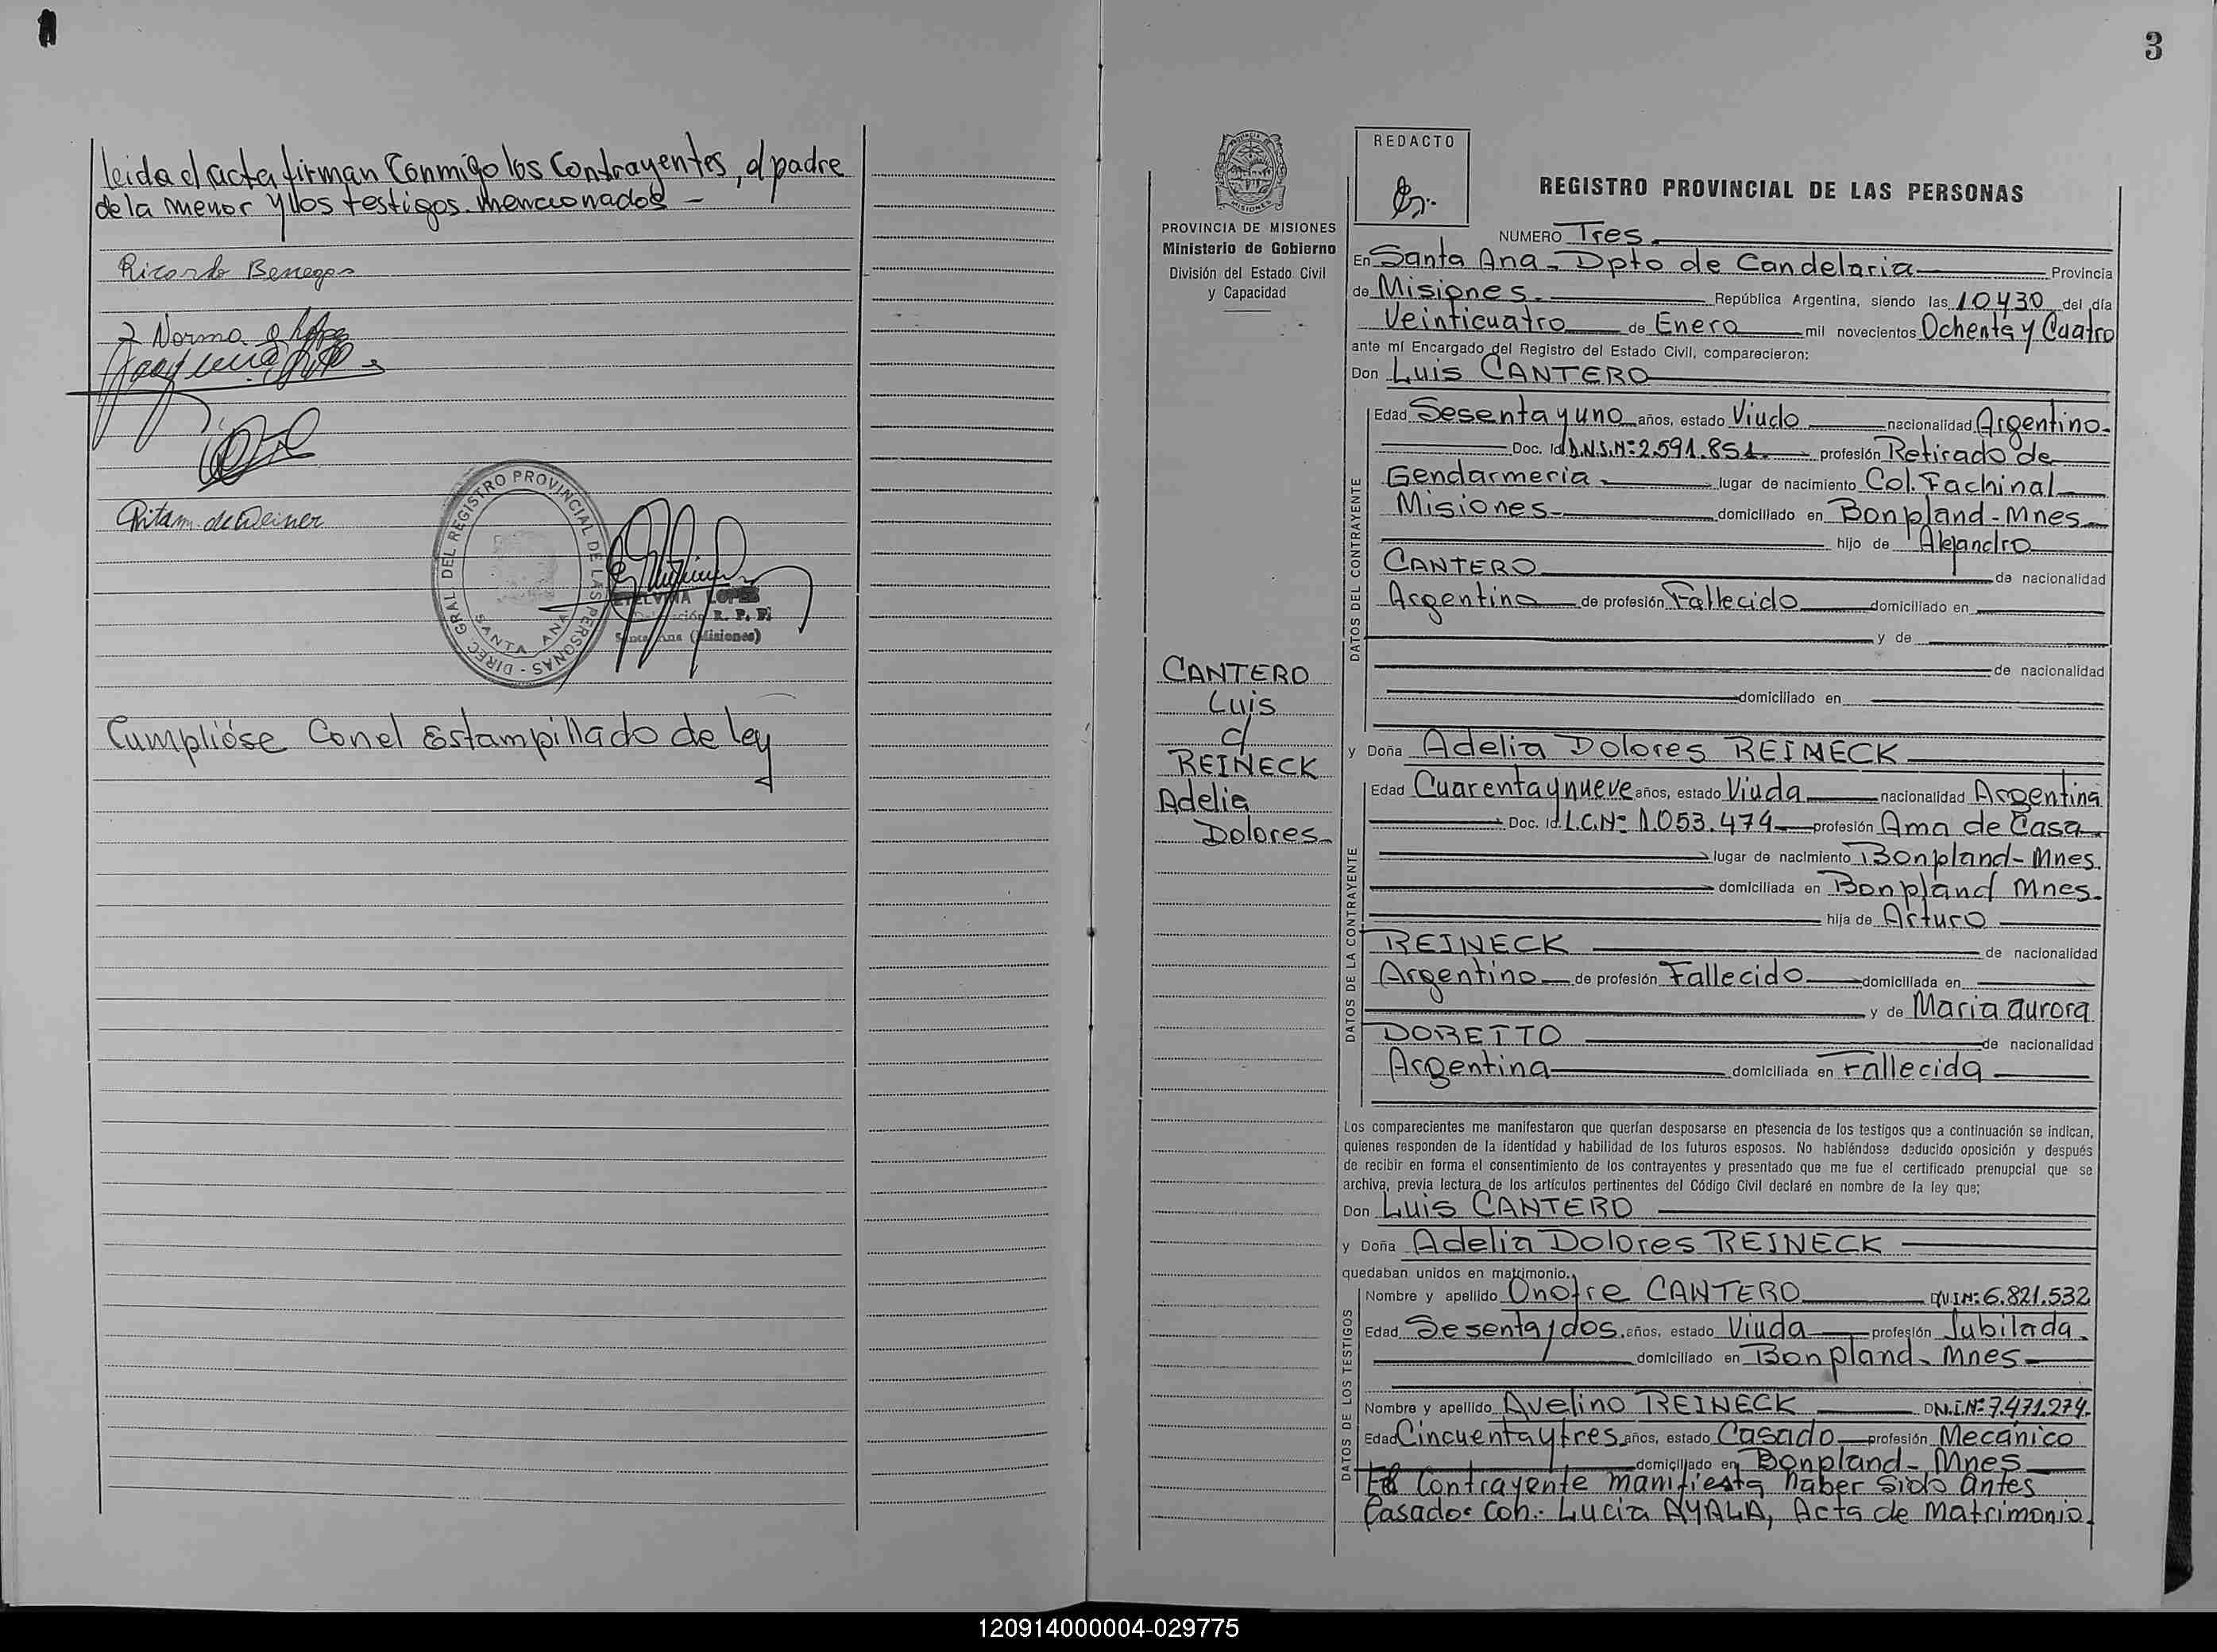 leida el acta firman Conmigo los Contrayentes, el padre
de la menor y los testigos mencionados -
Ricardo Benegas
Norma
Rita m. de Weiner
DIREC. GRAL DEL REGISTRO PROVINCIAL DE LAS PERSONAS -
SANTA ANA
ETELVINA LOPEZ
R. P. P.
Santa Ana (Misiones)
Cumplióse Con el Estampillado de ley
3
PROVINCIA DE MISIONES
Ministerio de Gobierno
División del Estado Civil
y Capacidad
CANTERO
Luis
c/
REINECK
Adelia
Dolores-
REDACTO
REGISTRO PROVINCIAL DE LAS PERSONAS
NUMERO Tres
En Santa Ana - Dpto de Candelaria Provincia
de Misiones. República Argentina, siendo las 10 y 30 del día
Veinticuatro de Enero mil novecientos Ochenta y Cuatro
ante mí Encargado del Registro del Estado Civil, comparecieron:
Don Luis CANTERO
DATOS DEL CONTRAYENTE
Edad Sesenta y uno años, estado Viudo nacionalidad Argentino.
Doc. Id. D.N.I.Nº 2.591.851 profesión Retirado de
Gendarmeria lugar de nacimiento Col. Fachinal
Misiones domiciliado en Bonpland - Mnes
hijo de Alejandro
CANTERO de nacionalidad
Argentino de profesión Fallecido domiciliado en
y de
de nacionalidad
domiciliado en
y Doña Adelia Dolores REINECK
DATOS DE LA CONTRAYENTE
Edad Cuarenta y nueve años, estado Viuda nacionalidad Argentina
Doc. Id. L.C.Nº 1.053.474 profesión Ama de Casa
lugar de nacimiento Bonpland - Mnes.
domiciliada en Bonpland Mnes.
hija de Arturo
REINECK de nacionalidad
Argentino de profesión Fallecido domiciliada en
y de Maria Aurora
DORETTO de nacionalidad
Argentina domiciliada en Fallecida
Los comparecientes me manifestaron que querían desposarse en presencia de los testigos que a continuación se indican,
quienes responden de la identidad y habilidad de los futuros esposos. No habiéndose deducido oposición y después
de recibir en forma el consentimiento de los contrayentes y presentado que me fue el certificado prenupcial que se
archiva, previa lectura de los artículos pertinentes del Código Civil declaré en nombre de la ley que;
Don Luis CANTERO
y Doña Adelia Dolores REINECK
quedaban unidos en matrimonio.
DATOS DE LOS TESTIGOS
Nombre y apellido Onofre CANTERO D.N.I.Nº: 6.821.532
Edad Sesenta y dos años, estado Viuda profesión Jubilada.
domiciliado en Bonpland - Mnes
Nombre y apellido Avelino REINECK D.N.I.Nº 7.471.274.
Edad Cincuenta y tres años, estado Casado profesión Mecánico
domiciliado en Bonpland - Mnes
El Contrayente manifiesta haber sido antes
Casado: con: Lucia AYALA, Acta de Matrimonio
120914000004-029775